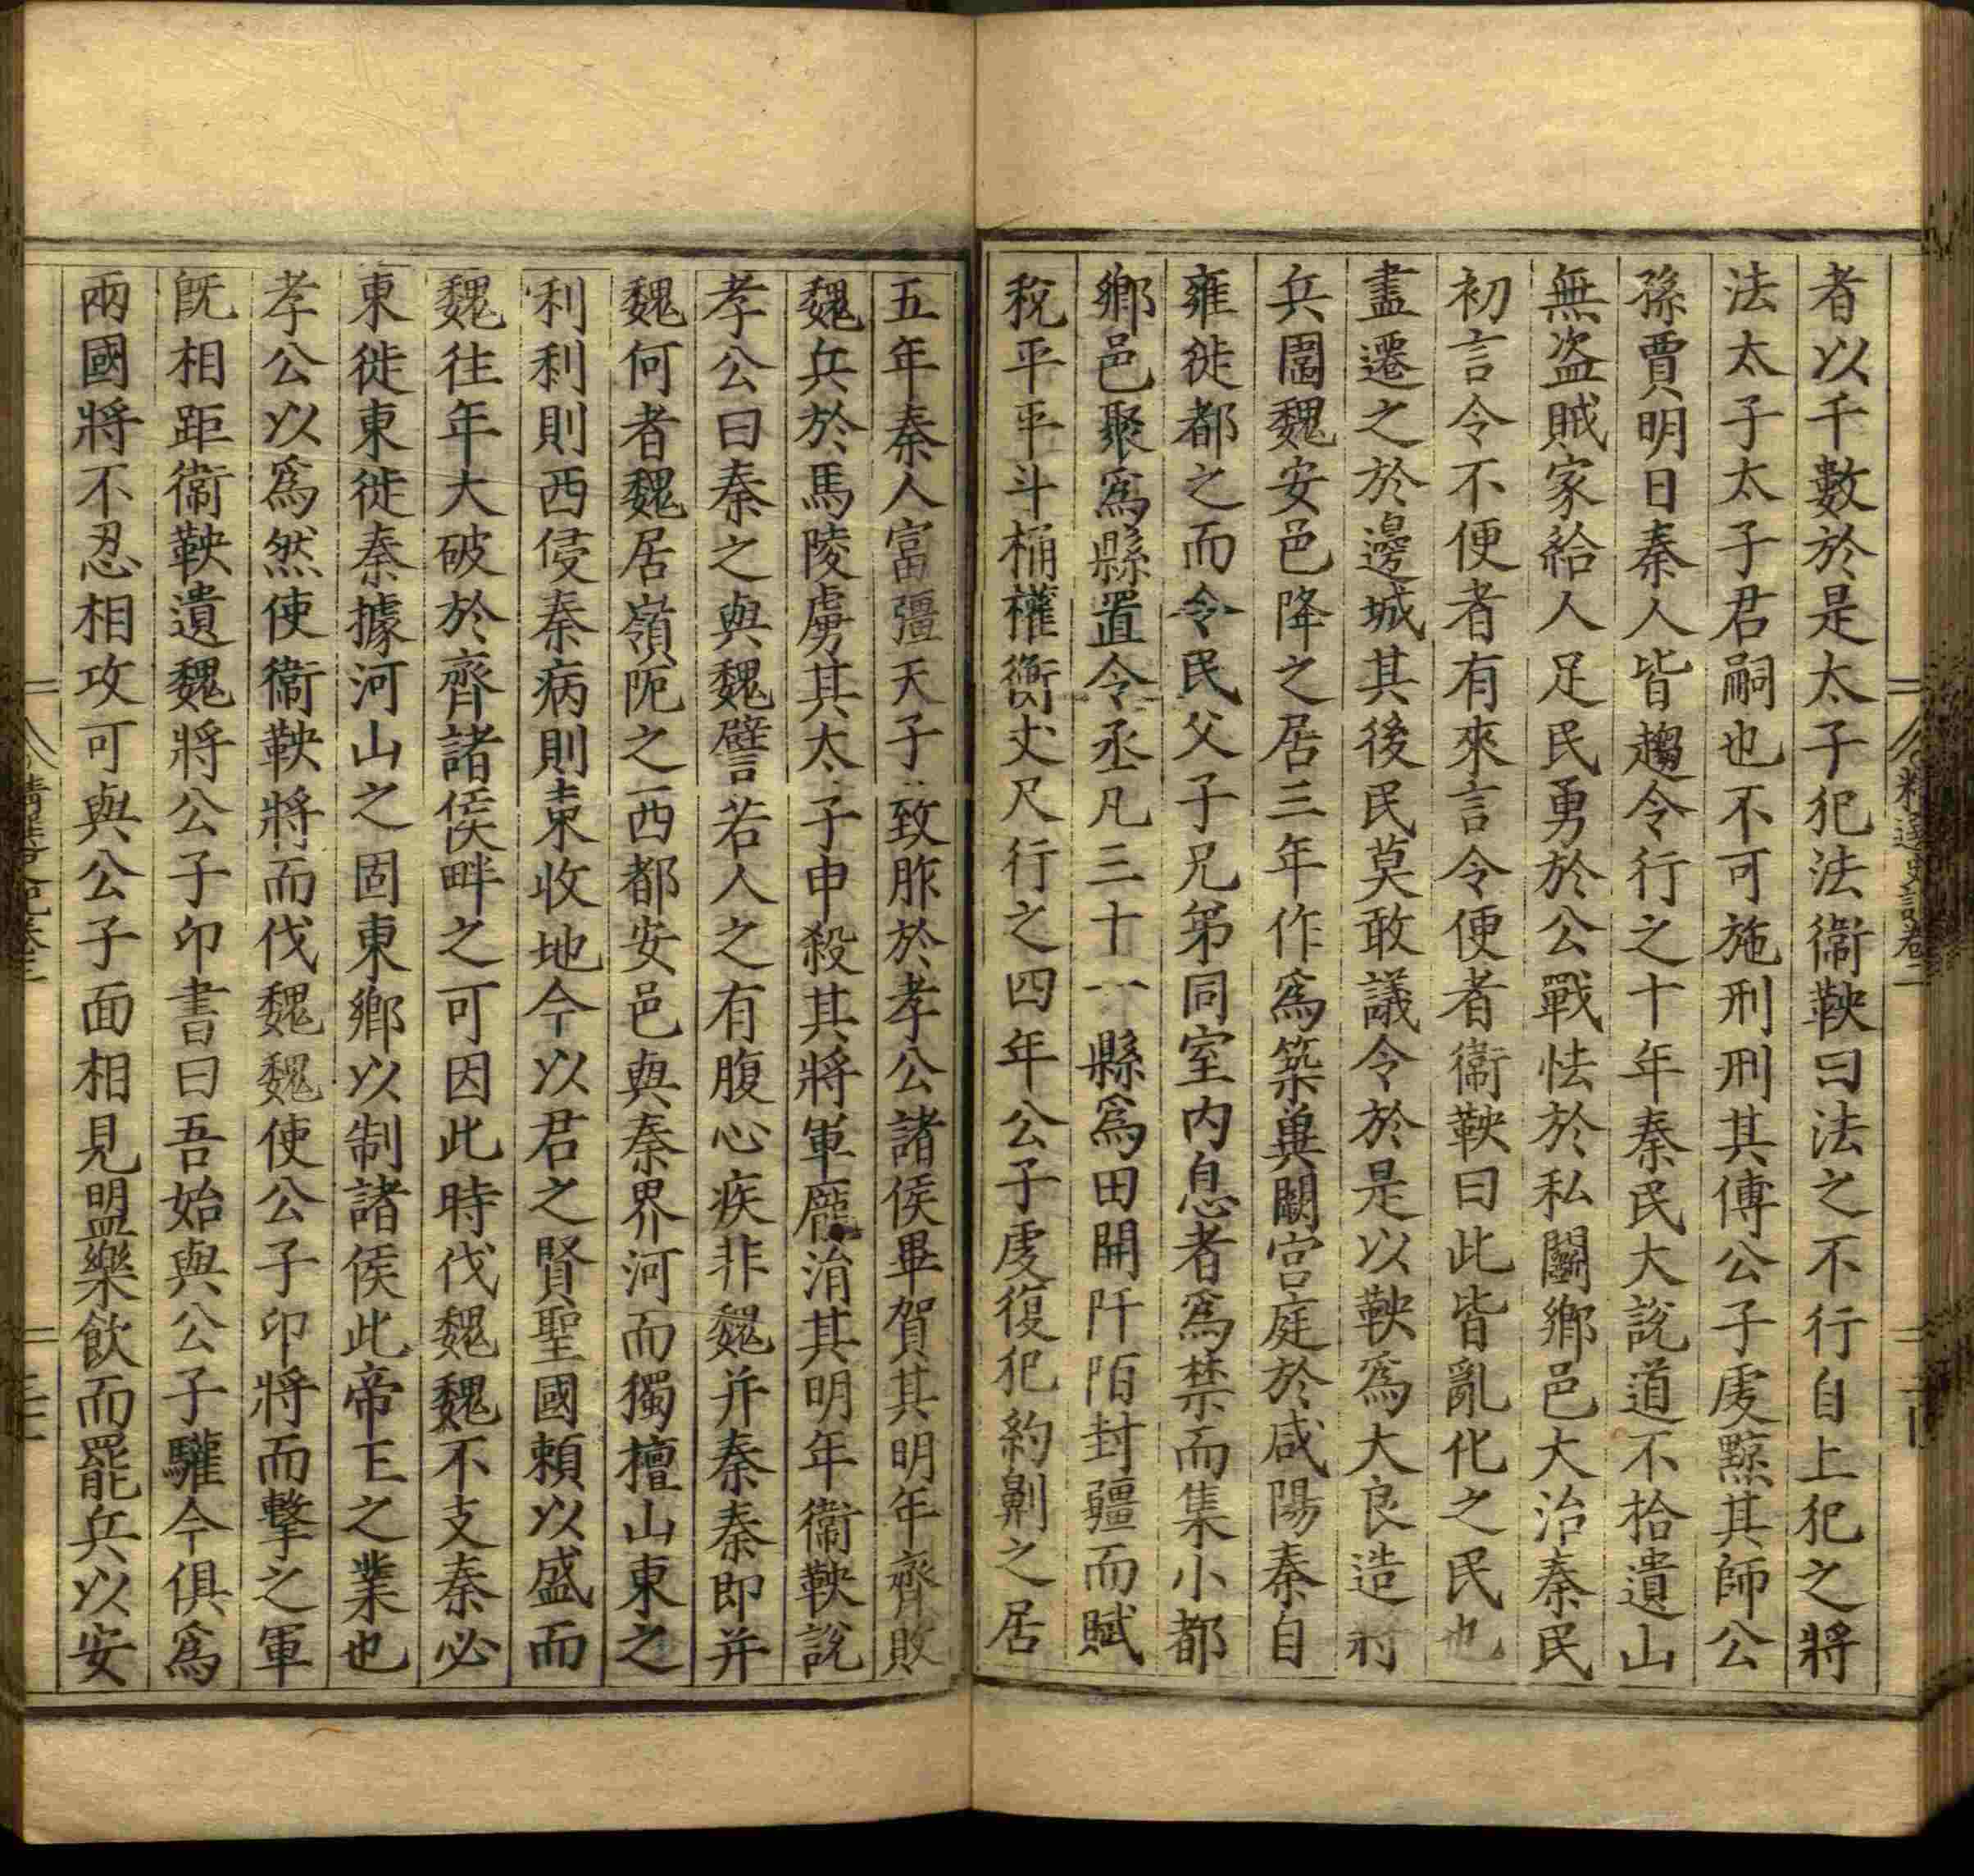 者以千數於是太子犯法衞鞅曰法之不行自上犯之將
法太子太子君嗣也不可施刑刑其傅公子虔黥其師公
孫賈明日秦人皆趨令行之十年秦民大說道不拾遺山
無盜賊家給人足民勇於公戰怯於私鬬鄉邑大治秦民
初言令不便者有來言令便者衞鞅曰此皆亂化之民也
盡遷之於邊城其後民莫敢議令於是以鞅爲大良造將
兵圍魏安邑降之居三年作爲築兾闕宮庭於咸陽秦自
雍徙都之而令民父子兄弟同室内息者爲禁而集小都
鄉邑聚爲縣置令丞凡三十一縣爲田開阡陌封疆而賦
稅平平斗桶權衡丈尺行之四年公子虔復犯約劓之居
五年秦人富彊天子致胙於孝公諸侯畢賀其明年齊敗
魏兵於馬陵虜其太子申殺其將軍龐涓其明年衞鞅說
孝公曰秦之與魏譬若人之有腹心疾非魏并秦秦即并
魏何者魏居嶺阨之西都安邑與秦界河而獨擅山東之
利利則西侵秦病則東收地今以君之賢聖國賴以盛而
魏往年大破於齊諸侯畔之可因此時伐魏魏不支秦必
東徙東徙秦據河山之固東鄉以制諸侯此帝王之業也
孝公以爲然使衞鞅將而伐魏魏使公子卬將而擊之軍
旣相距衞鞅遺魏將公子卬書曰吾始與公子驩今俱爲
兩國將不忍相攻可與公子面相見盟樂飲而罷兵以安